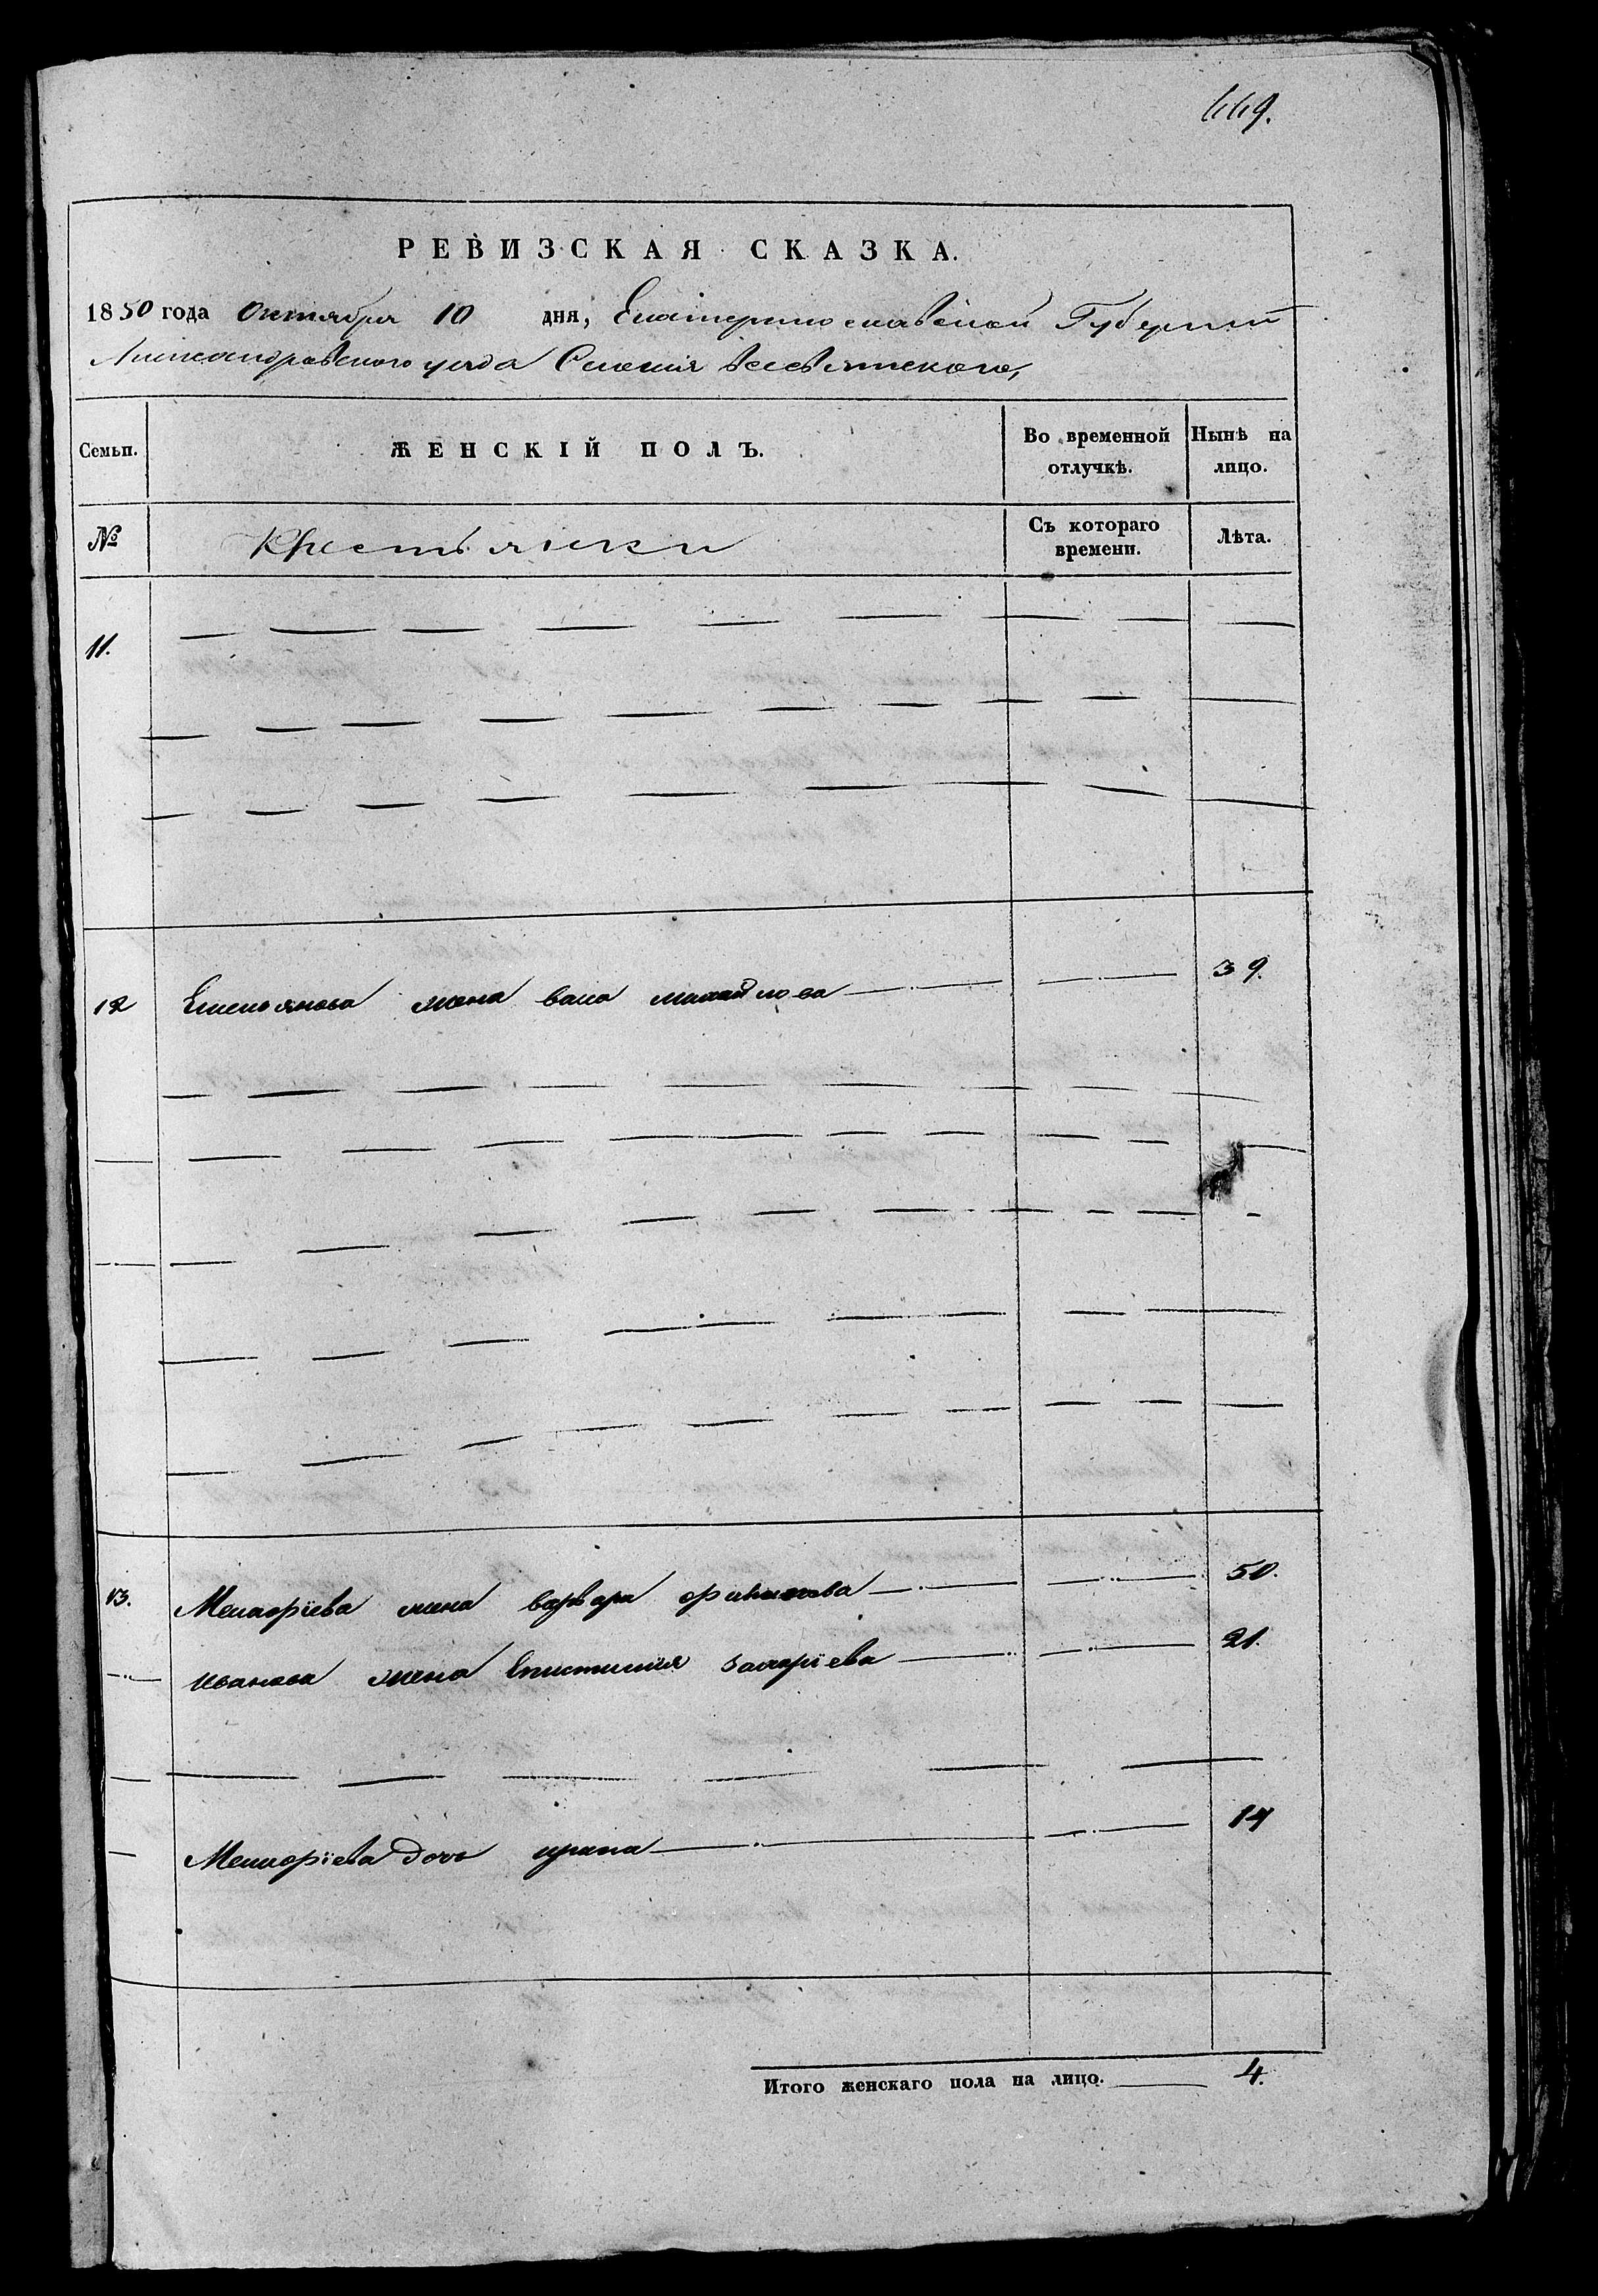 449.
РЕВИЗСКАЯ СКАЗКА.
1850 года Октября 10 дня, Екатеринославской Губернии
Александровского уезда Селения Всесвятского,
Семьи. ЖЕНСКІЙ ПОЛЪ. Во временной отлучкѣ. Нынѣ на лицо.
№ Крестьянки Съ котораго времени. Лѣта.
11.
12 Емельянова жена васа михайлова 39.
13. варвара 50.
иванова жена Епистимия захарїева 21.
дочь ирина 14
Итого женскаго пола на лицо. 4.